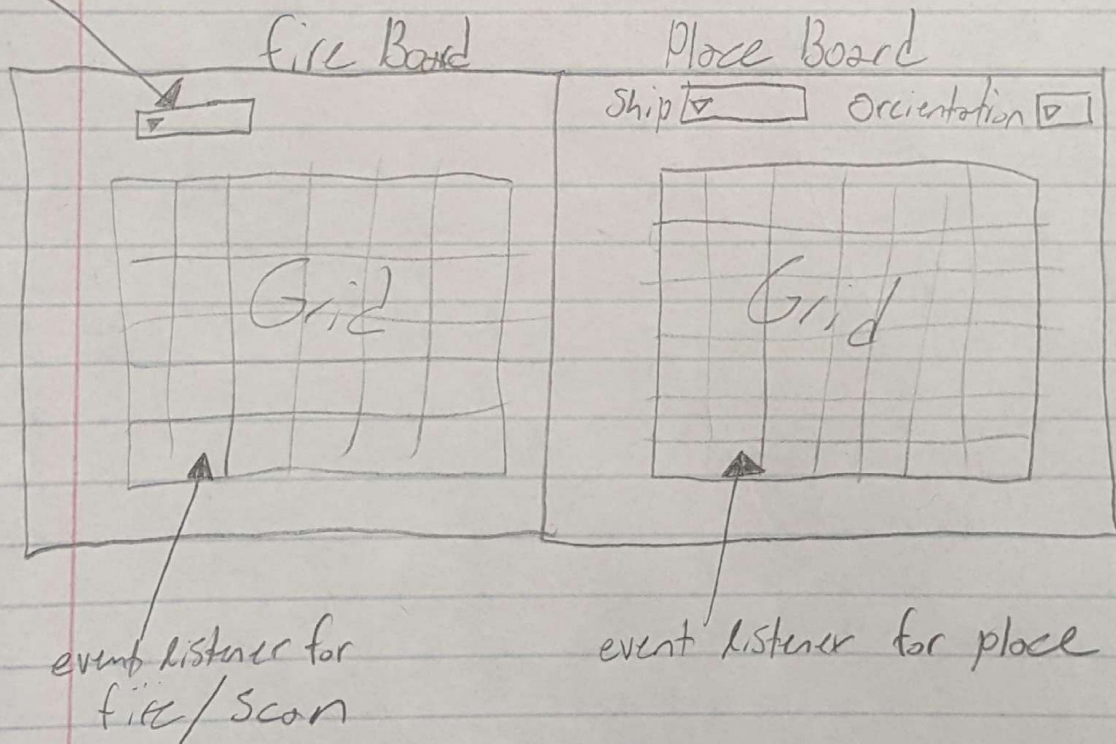 Fire Board
Place Board
Ship
Orcientation
Grid
Grid
event listener for
fire/Scan
event listener for place